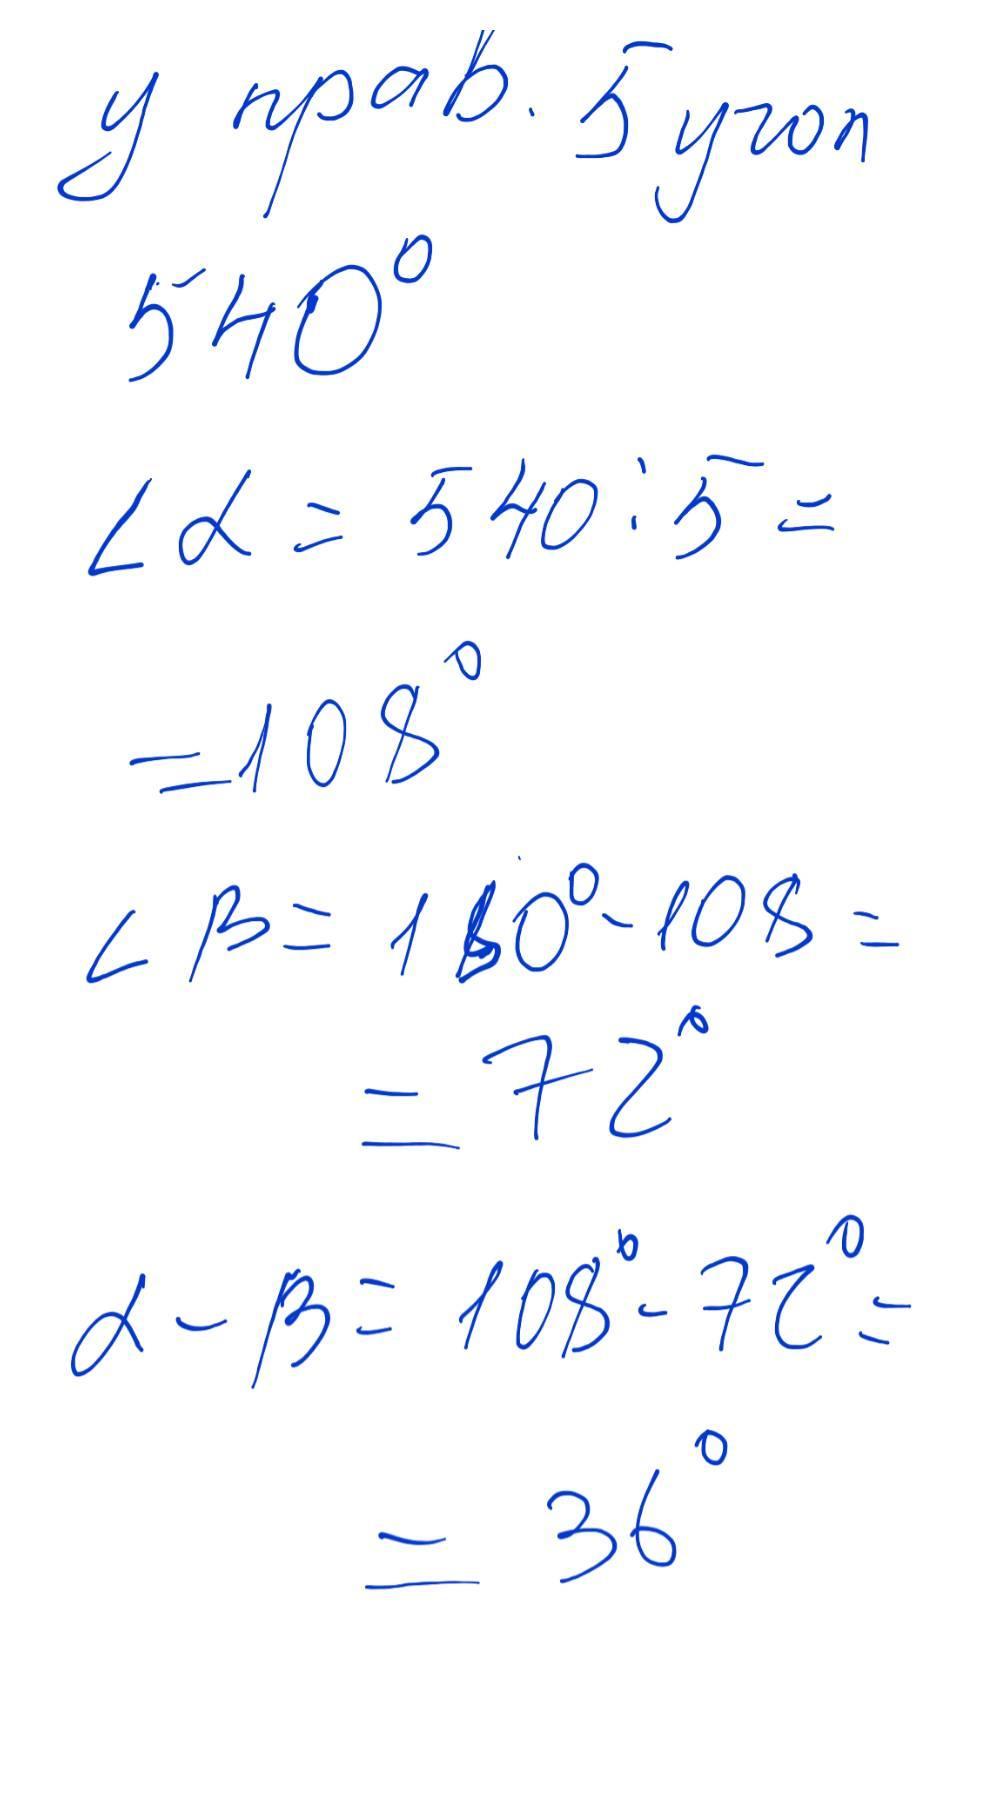 у прав. 5 угол
540°
∠α = 540 : 5 =
= 108°
∠β = 180° - 108 =
= 72°
α - β = 108° - 72° =
= 36°